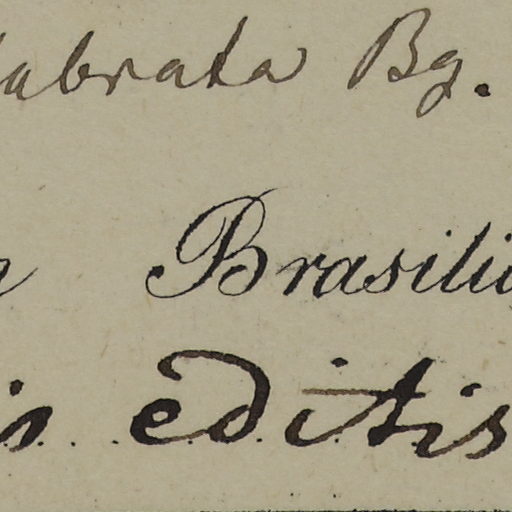 labrata Bg.
Brasili
is editis